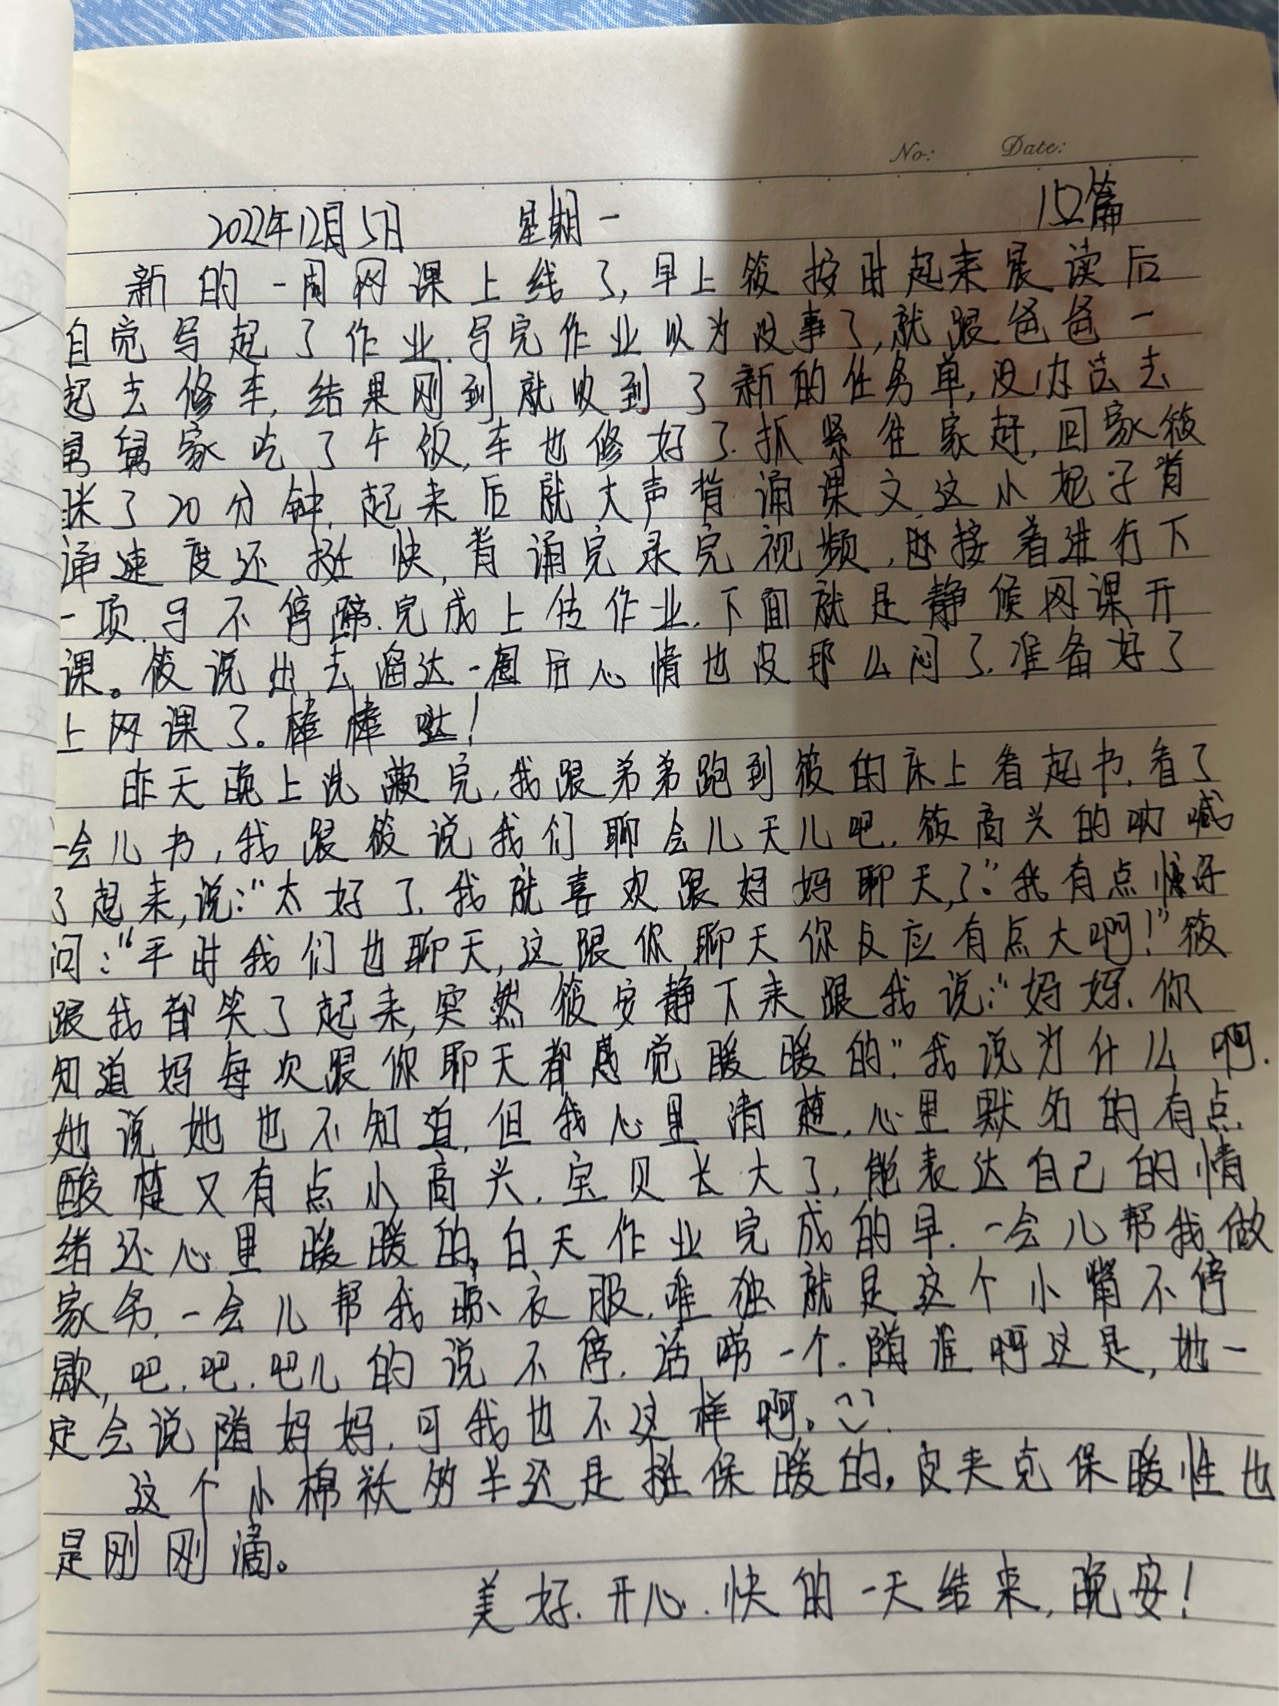 No: Date:
2022年12月5日 星期一 152篇
新的一周网课上线了,早上筱按时起来晨读后
自觉写起了作业.写完作业以为没事了,就跟爸爸一
起去修车,结果刚到就收到了新的任务单,没办法去
舅舅家吃了午饭,车也修好了.抓紧往家赶,回家筱
眯了20分钟.起来后就大声背诵课文.这小妮子背
诵速度还挺快,背诵完录完视频,接着进行下
一项.马不停蹄.完成上传作业.下面就是静候网课开
课。筱说出去溜达一圈后心情也没那么闷了.准备好了
上网课了。棒棒哒!
昨天晚上洗漱完,我跟弟弟跑到筱的床上看起书.看了
一会儿书,我跟筱说我们聊会儿天儿吧.筱高兴的呐喊
了起来,说:“太好了.我就喜欢跟妈妈聊天了”.我有点惊讶
问:“平时我们也聊天,这跟你聊天你反应有点大啊!”筱
跟我都笑了起来,突然筱安静下来跟我说:“妈妈.你
知道妈每次跟你聊天都感觉暖暖的.”我说为什么啊.
她说她也不知道.但我心里清楚.心里默名的有点
酸楚又有点小高兴.宝贝长大了.能表达自己的情
绪还心里暖暖的,白天作业完成的早.一会儿帮我做
家务.一会儿帮我晾衣服.唯独就是这个小嘴不停
歇,吧.吧.吧儿的说不停.话唠一个.随谁啊这是,她一
定会说随妈妈.可我也不这样啊。
这个小棉袄多半还是挺保暖的,皮夹克保暖性也
是刚刚滴。
美好.开心.快的一天结束,晚安!